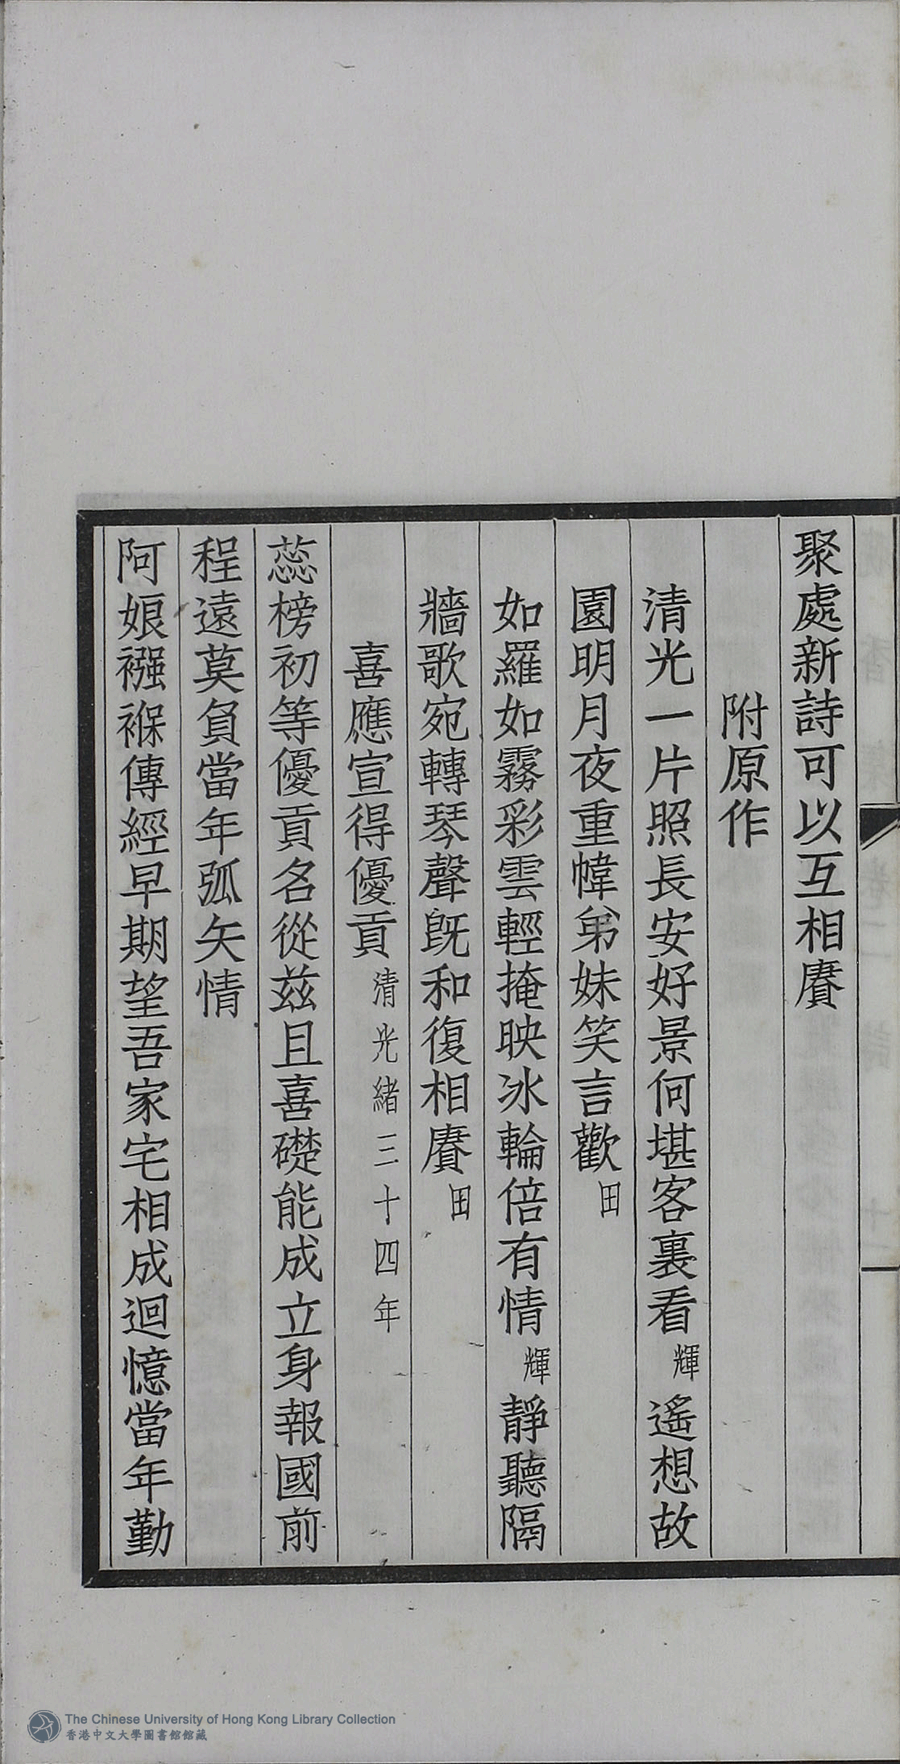 聚處新詩可以互相賡
附原作
清光一片照長安好景何堪客裏看輝遙想故
園明月夜重幃弟妹笑言歡田
如羅如霧彩雲輕掩映冰輪倍有情輝靜聽隔
牆歌宛轉琴聲旣和復相賡田
喜應宣得優貢清光緒三十四年
蕊榜初等優貢名從兹且喜礎能成立身報國前
程遠莫負當年弧矢情
阿娘襁褓傳經早期望吾家宅相成迴憶當年勤
The Chinese University of Hong Kong Library Collection
香港中文大學圖書館館藏